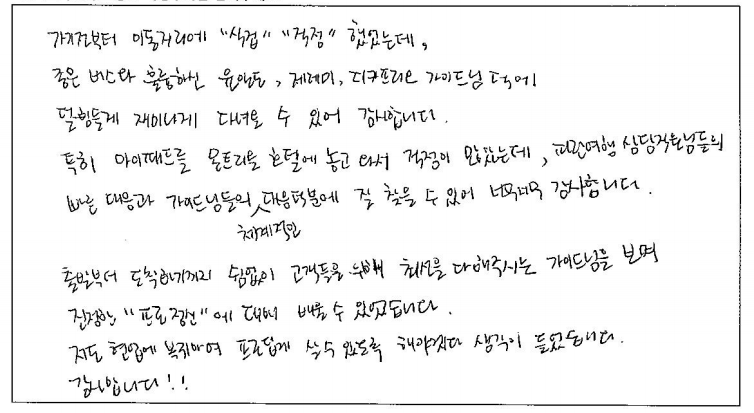 가기전부터 이동거리에 "식겁" "걱정" 했었는데,
좋은 버스와 훌륭하신 윤앤도, 제레미, 디카프리오 가이드님 덕에
덜힘들게 재미나게 다녀올 수 있어 감사합니다.
특히 아이패드를 몬트리올 호텔에 놓고 와서 걱정이 많았는데, 파란여행 상담직원님들의
빠른 대응과 가이드님들의 체계적인 대응덕분에 잘 찾을 수 있어 너무너무 감사합니다.
출발부터 도착하기까지 쉼없이 고객들을 위해 최선을 다해주시는 가이드님을 보며
진정한 "프로정신"에 대해 배울 수 있었습니다.
저도 현업에 복귀하여 프로답게 살 수 있도록 해야겠다 생각이 들었습니다.
감사합니다!!